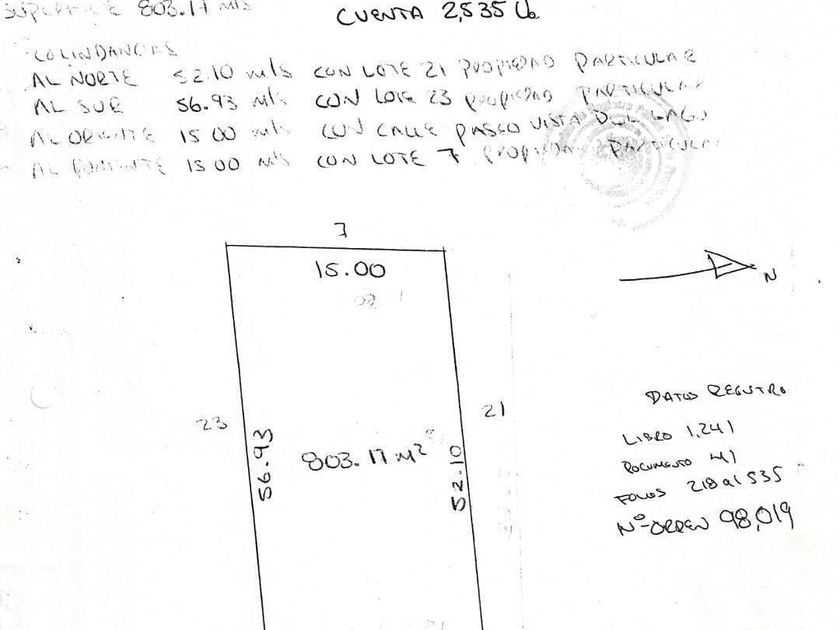 SUPERFICIE 803.17 mts
CUENTA 2,535 Ub.
COLINDANCIAS
AL NORTE 52.10 mts CON LOTE 21 PROPIEDAD PARTICULAR
AL SUR 56.93 mts CON LOTE 23 PROPIEDAD PARTICULAR
AL ORIENTE 15.00 mts CON CALLE PASEO VISTA DEL LAGO
AL PONIENTE 15.00 mts CON LOTE 7 PROPIEDAD PARTICULAR
7
15.00
N
DATOS REGISTRO
23
21
LIBRO 1,241
56.93
803.17 M²
52.10
DOCUMENTO 41
FOLIOS 218 al 535
Nº ORDEN 98,019